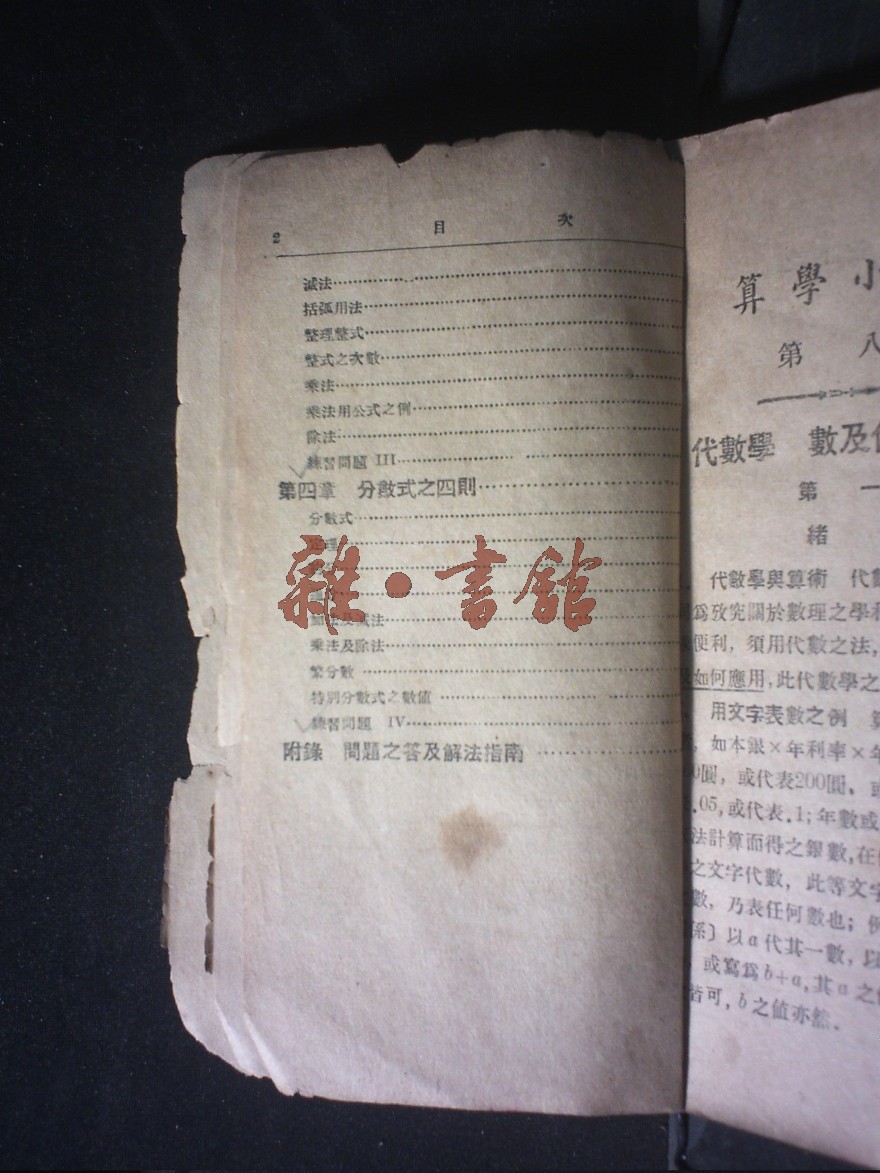 2 目 次
減法
括弧用法
整理整式
整式之次數
乘法
乘法用公式之例
除法
練習問題 III
第四章 分數式之四則
分數式
乘法及除法
繁分數
特別分數式之數值
練習問題 IV
附錄 問題之答及解法指南
雜·書館
算學小
第 八
代數學 數及代
第 一
緒
代數學與算術 代數
爲攷究關於數理之學
便利，須用代數之法，
如何應用，此代數學之
用文字表數之例
，如本銀×年利率×年
0圓，或代表200圓，或
.05，或代表.1；年數或
法計算而得之銀數，在
之文字代數，此等文字
數，乃表任何數也；例
係〕以a代其一數，以
，或寫爲b+a，其a之值
皆可，b之值亦然．